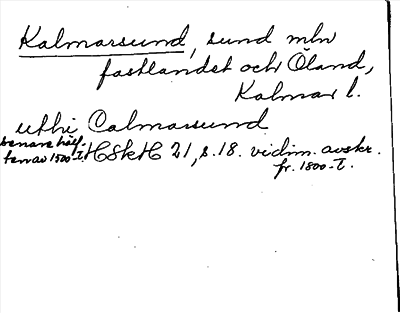 Kalmarsund, sund mln
fastlandet och Öland,
Kalmar l.
uthi Calmarsund
senare hälf-
ten av 1500-t. HSkH 21, s. 18. vidim. avskr.
fr. 1800-t.